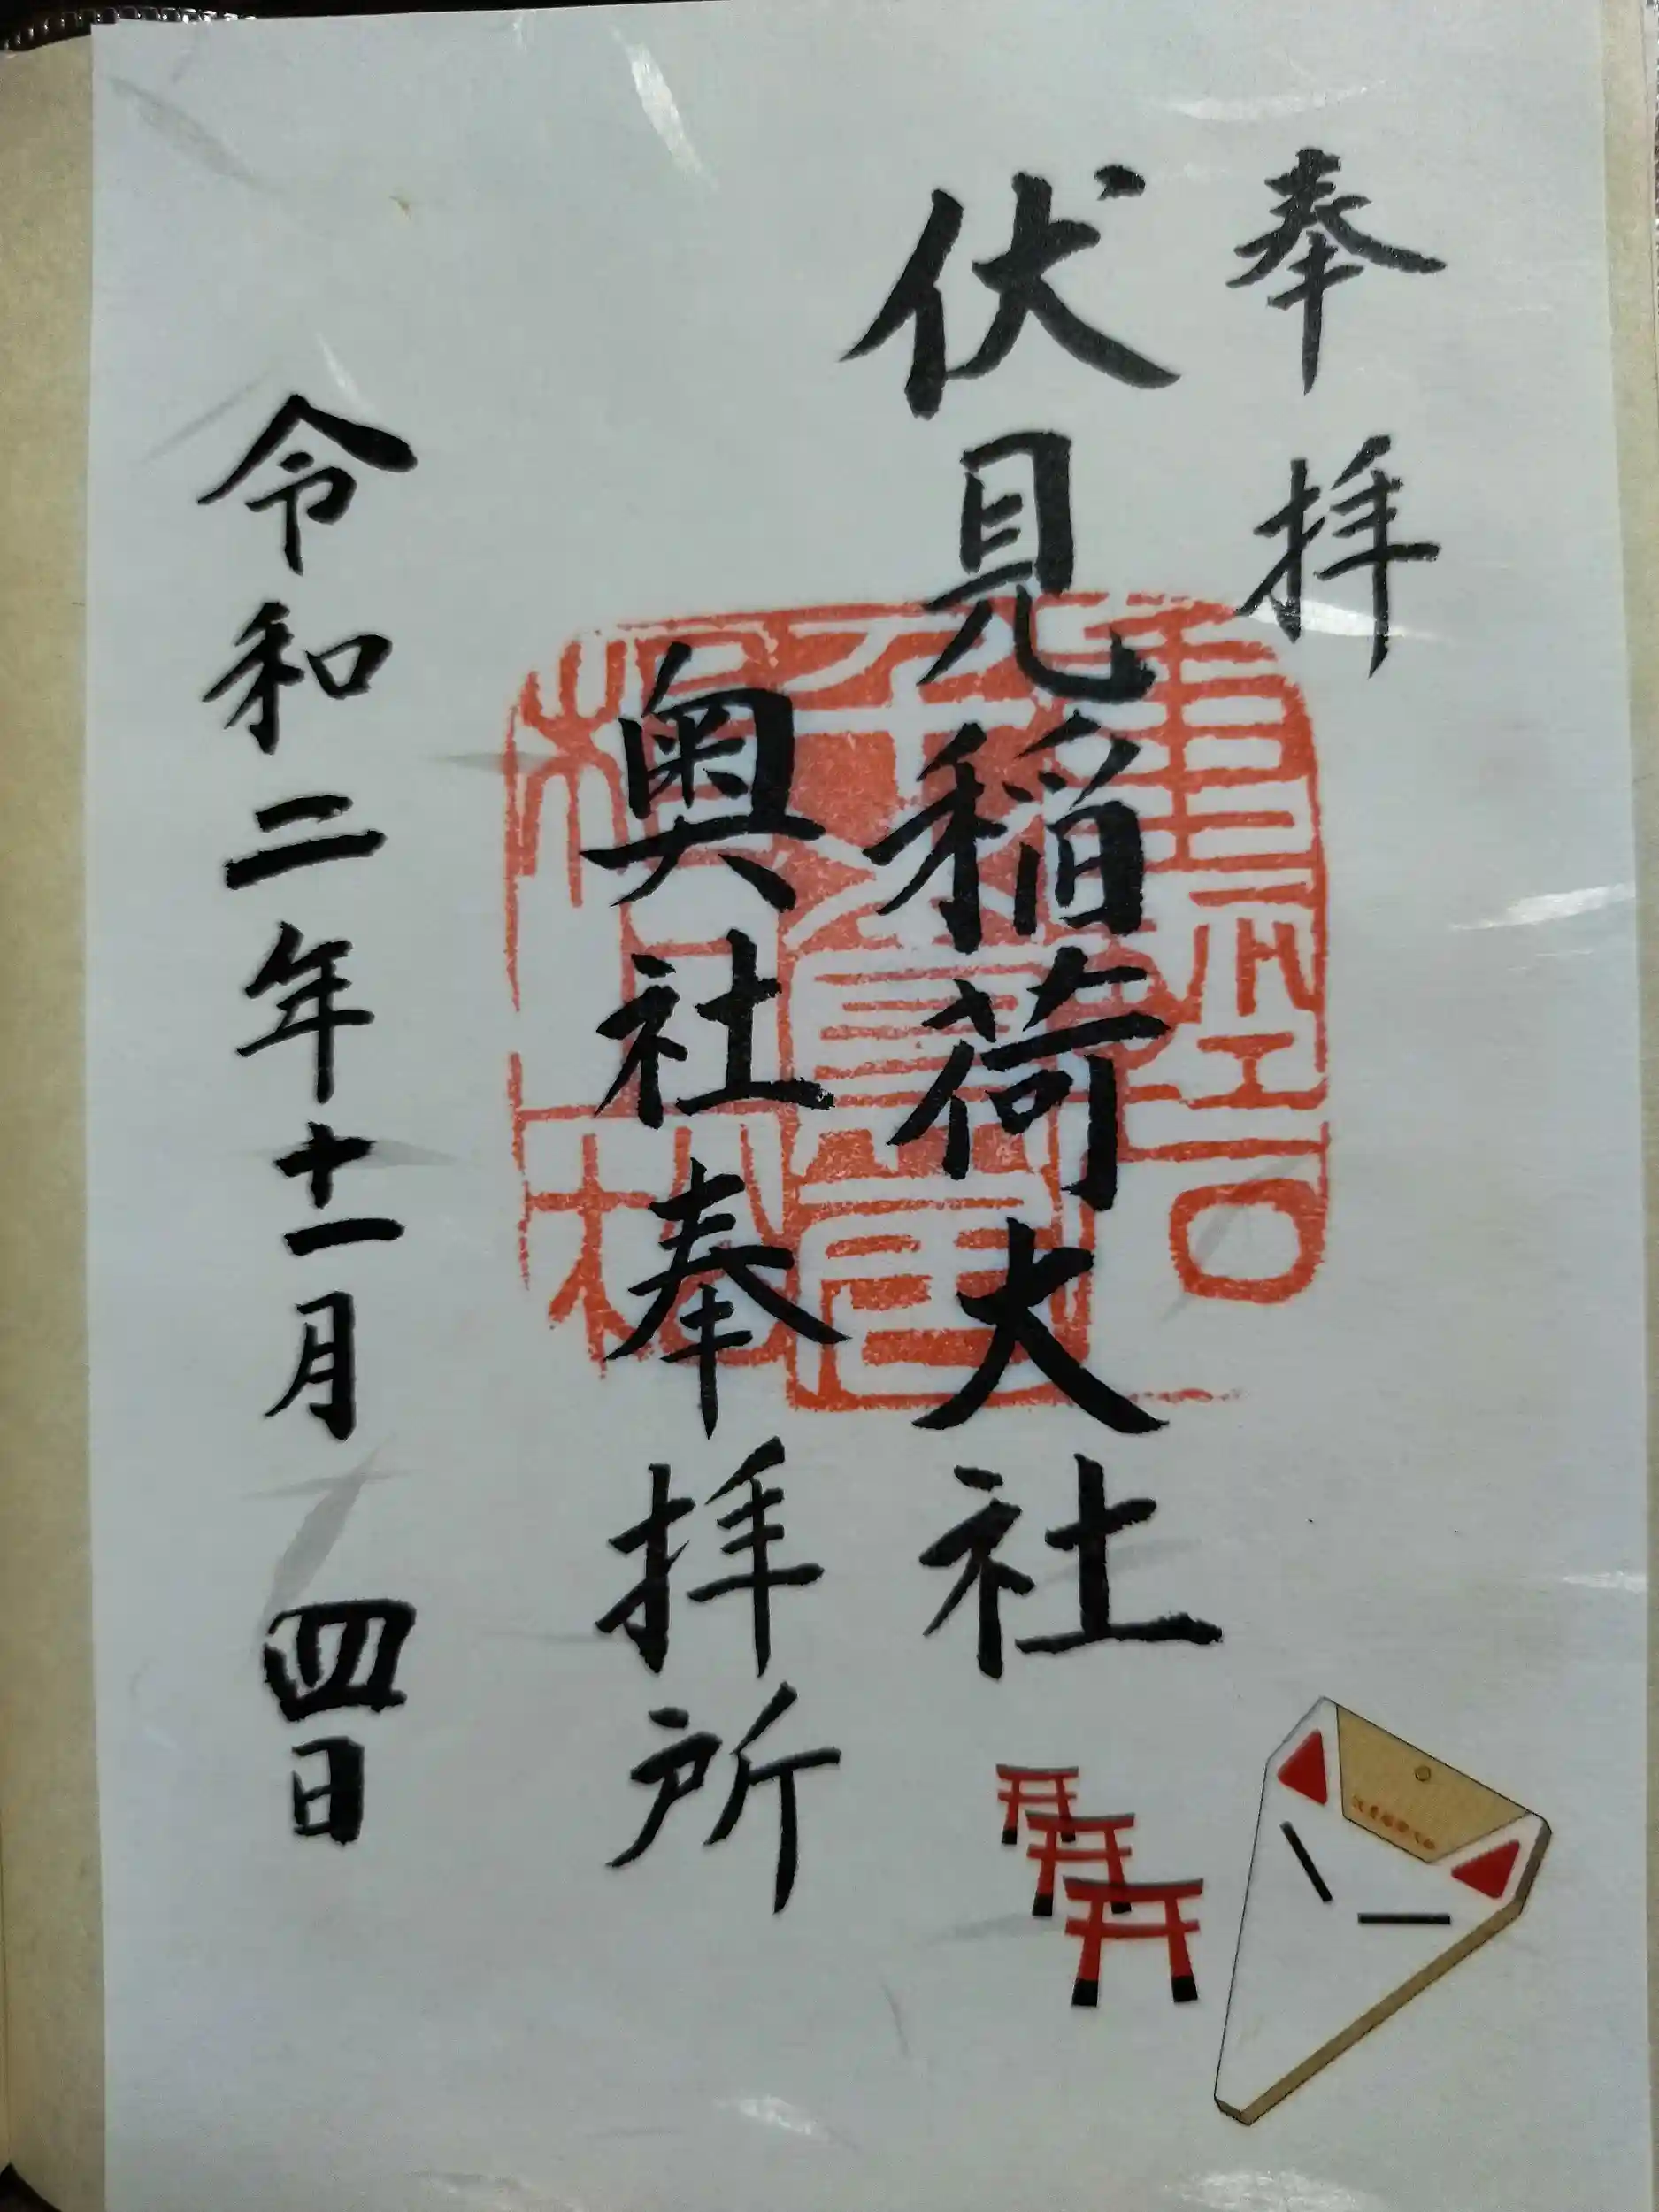 奉拝
伏見稲荷大社
奥社奉拝所
令和二年十一月四日